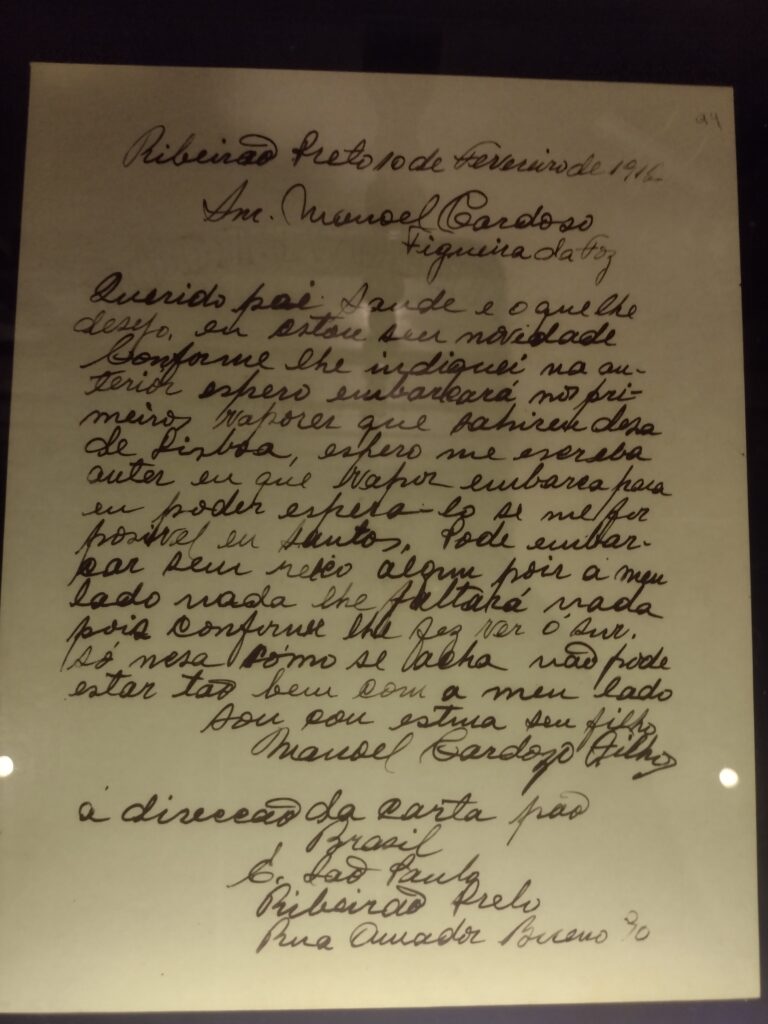 24
Ribeirão Preto 10 de Fevereiro de 191
Snr. Manoel Cardoso
Figueira da Foz
Querido pai Saude e o que lhe
desejo, eu estou sem novidade
Conforme lhe indiquei na an-
terior espero embarcará nos pri-
meiros vaporer que sahiren desa
de Lisboa, espero me escreba
anter en que vapor embarca para
eu poder espera-lo se me for
posivel en Santos. Pode embar-
car sem algum poir a meu
lado nada lhe faltará nada
pois conforme lhe fez ver o Snr.
só nesa cómo se acha não pode
estar tão bem com a meu lado
Sou con estma seu filho
Manoel Cardozo Filho
á direccão da carta
Brasil
E. São Paulo
Ribeirão Preto
Rua Amador Bueno 90